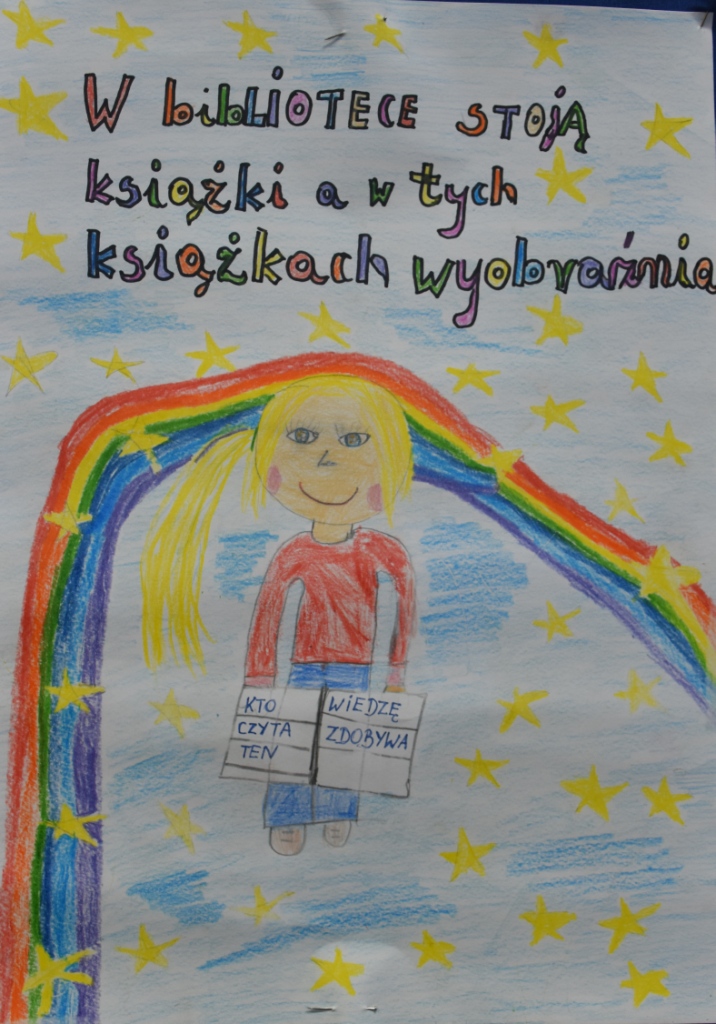 W bibLIOTECE STOJĄ
książki a w tych
książkach wyobraźnia
KTO
CZYTA
TEN
WIEDZĘ
ZDOBYWA